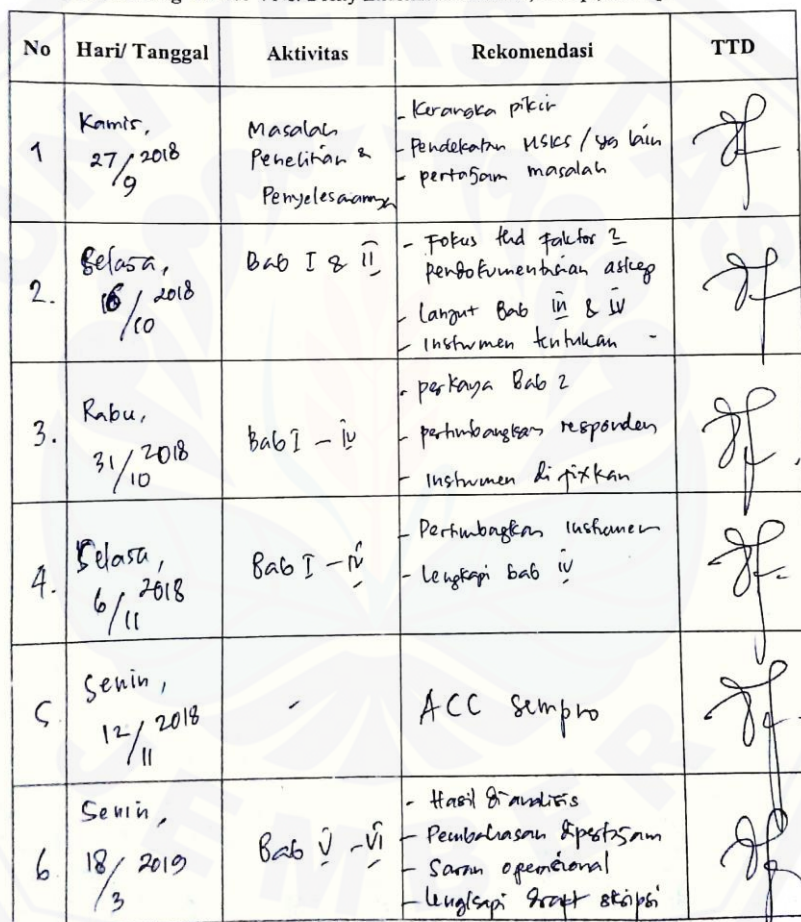 No Hari/ Tanggal Aktivitas Rekomendasi TTD
1
Kamis,
27/9 2018
Masalah
Penelitian &
Penyelesaiannya
- Kerangka pikir
- Pendekatan MSKS / yg lain
- pertajam masalah
2.
Selasa,
16/10 2018
Bab I & II
- Fokus thd faktor 2
pendokumentasian askep
- Lanjut Bab III & IV
- Instrumen tentukan
3.
Rabu,
31/10 2018
Bab I - IV
- perkaya Bab 2
- pertimbangkan responden
- Instrumen di fixkan
4.
Selasa,
6/11 2018
Bab I - IV
- Pertimbagkan instrumen
- Lengkapi bab IV
5.
Senin,
12/11 2018
-
ACC Sempro
6.
Senin,
18/3 2019
Bab V - VI
- Hasil dianalisis
- Pembahasan dipertajam
- Saran operasional
- Lengkapi draft skripsi
UNIVERSITAS
JEMBER